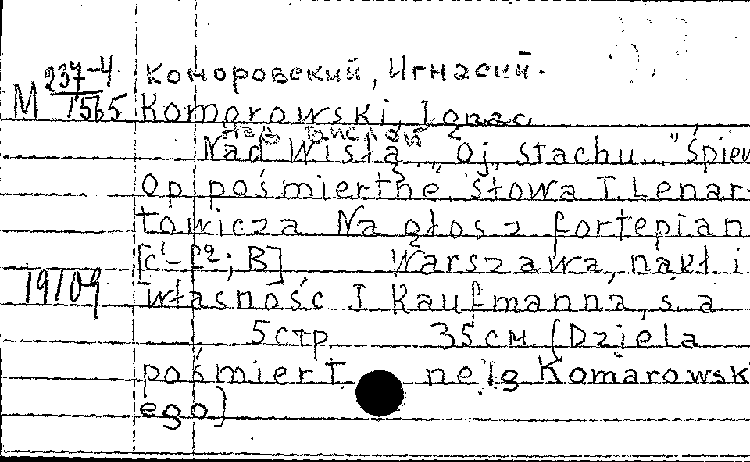 М 237-4 Коморовский, Игнасий.
1565 Komorowski, Ignac
Nad Wisłą „Oj, stachu..." śpiew
Op pośmierthe, słowa T. Lenar-
towicza Na głos z fortepian
[c¹-f²; B] Warszawa, nakł i
19109 własność I Kaufmanna, s. a
5 стр 35 см (Dziela
pośmiert ne Ig Komarowsk
ego]